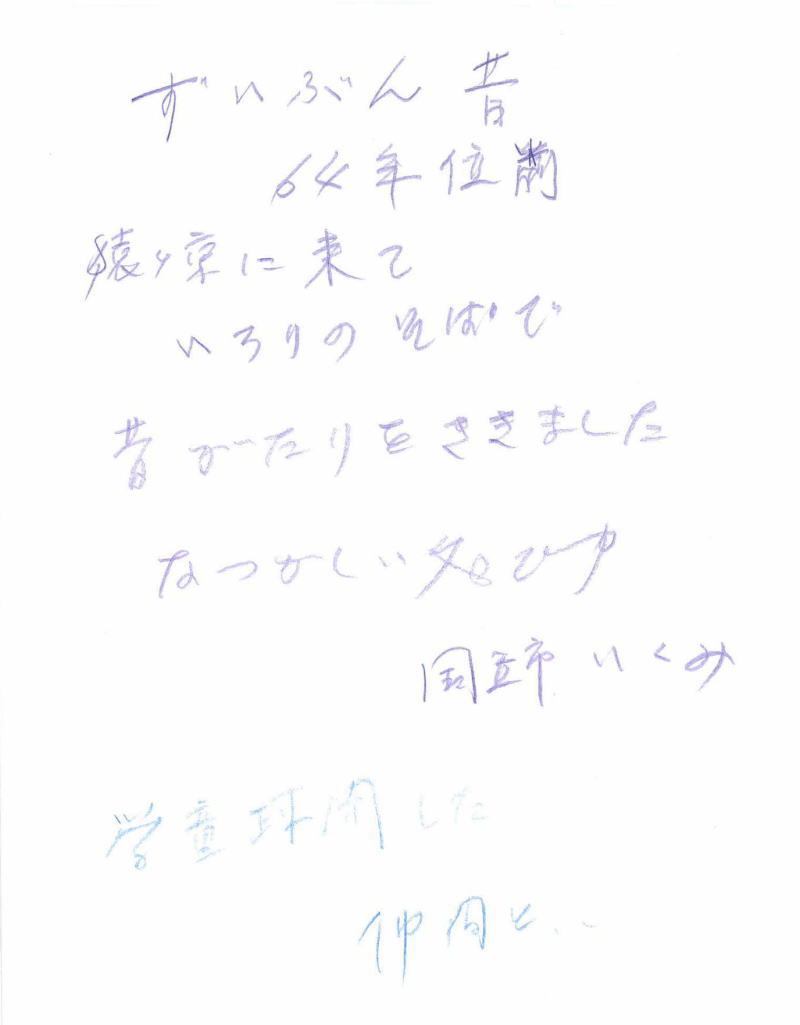 ずいぶん昔
64年位前
猿ヶ京に来て
いろりのそばで
昔がたりをききました
なつかしい
国立市 いくみ
学童疎開した
仲間と..